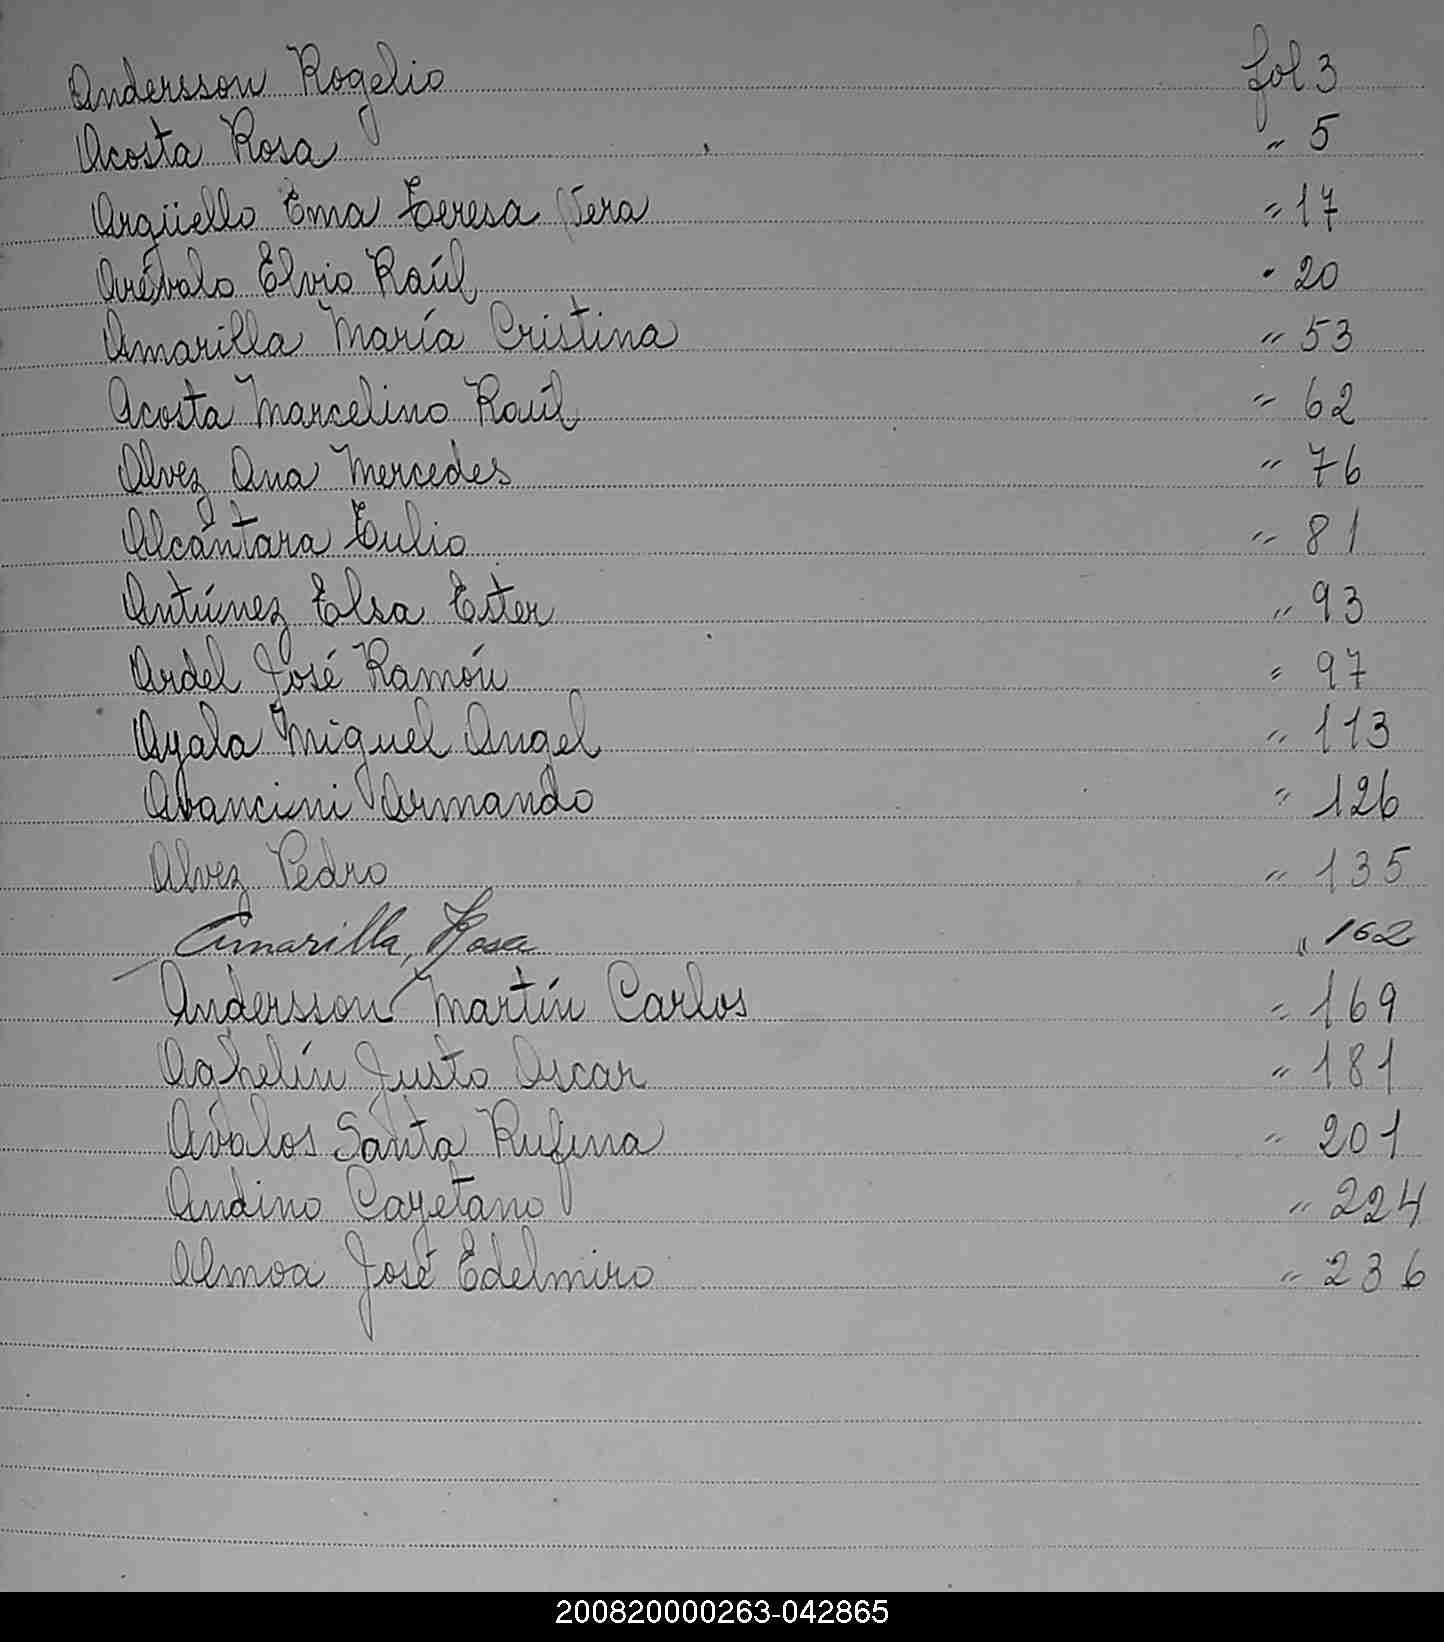 Andersson Rogelio fol 3
Acosta Rosa " 5
Argüello Ema Teresa Vera " 17
Arévalo Elvio Raúl " 20
Amarilla María Cristina " 53
Acosta Marcelino Raúl " 62
Alvez Ana Mercedes " 76
Alcántara Tulio " 81
Antúnez Elsa Ester " 93
Ardel José Ramón " 97
Ayala Miguel Angel " 113
Avancini Armando " 126
Alvez Pedro " 135
Amarilla, Rosa " 162
Andersson Martín Carlos " 169
Aghelín Justo Oscar " 181
Ávalos Santa Rufina " 201
Andino Cayetano " 224
Almoa José Edelmiro " 236
200820000263-042865